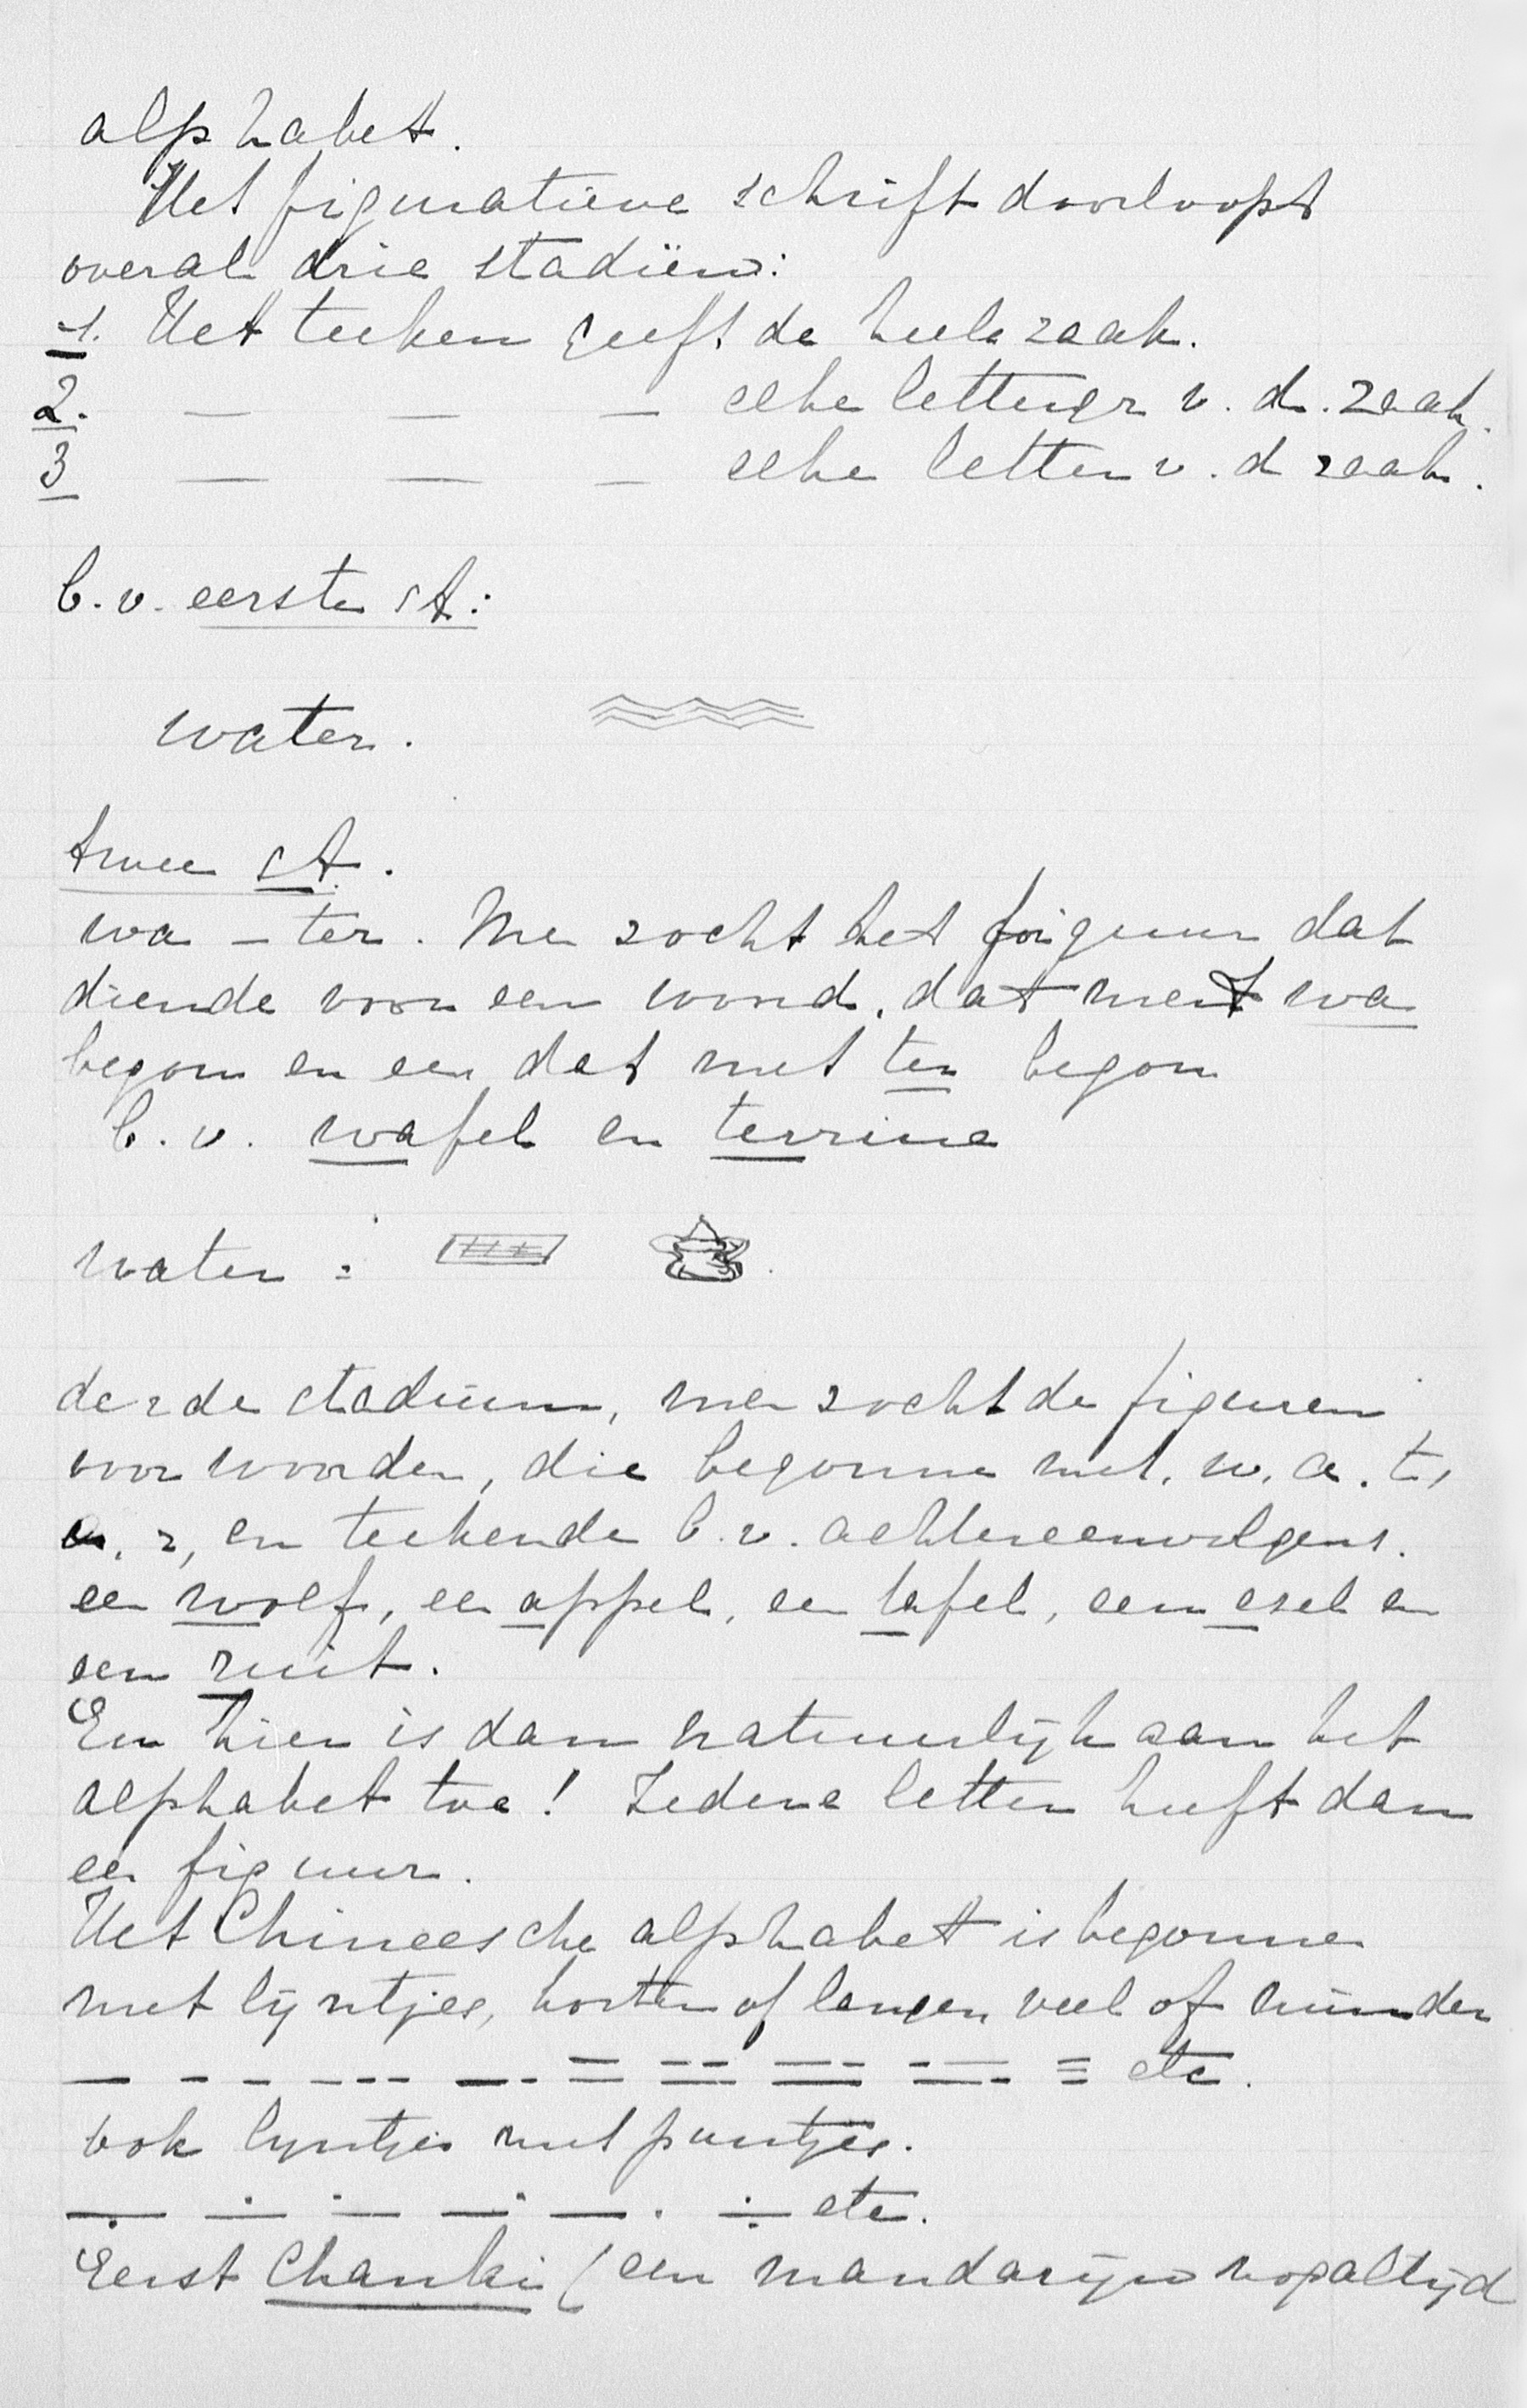 alphabet.
Het figuratieve schrift doorloopt
overal drie stadiën:
1. Het teeken geeft de heele zaak.
2. — — — elke lettergr v. d. zaak.
3 — — — elke letter v. d zaak.
b.v. eerste st:
water.
twee st.
wa – ter. Men zocht het figuur dat
diende voor een woord, dat met wa
begon en een dat met ter begon
b.v. wafel en terrine
water =
derde stadium, men zocht de figuren
voor woorden, die begonnen met. w. a. t,
e. r, en teekende b.v. achtereenvolgens.
een wolf, een appel, een tafel, een ezel en
een ruit.
En hier is dan natuurlijk aan het
alphabet toe! Iedere letter heeft dan
een figuur.
Het Chineesche alphabet is begonnen
met lijntjes, korter of langer, veel of minder
etc.
ook lijntjes met puntjes.
etc.
Eerst Chanki (een mandarijn nog altijd